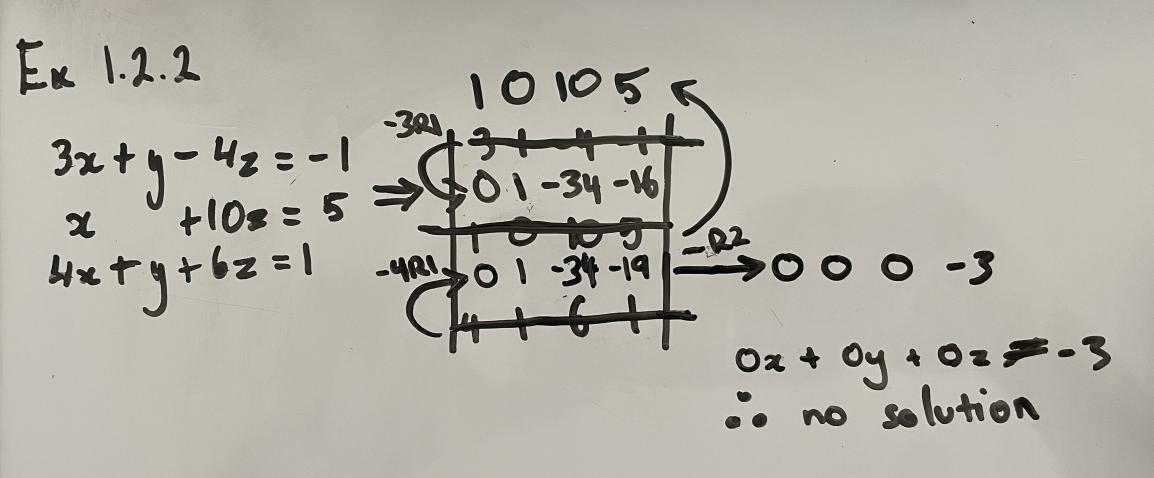 Ex 1.2.2
3x + y - 4z = -1
x +10z = 5
4x + y + 6z = 1
⇒
1 0 10 5
-3R1
0 1 -34 -16
1 0 10 5
-4R1
0 1 -34 -19
4 1 6 1
-R2
0 0 0 -3
0x + 0y + 0z = -3
∴ no solution